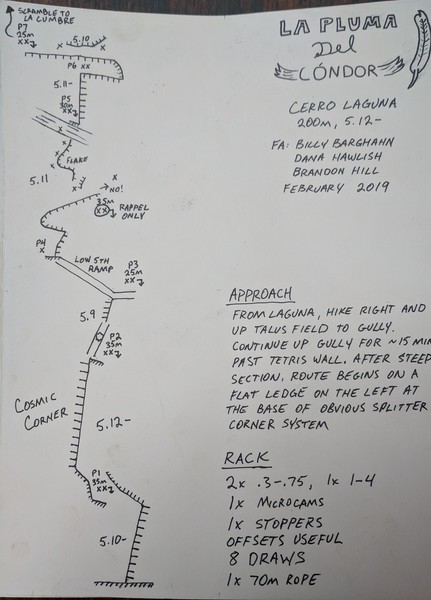 LA PLUMA
Del
CÓNDOR
CERRO LAGUNA
200m, 5.12-
FA: BILLY BARGHAHN
DANA HAWLISH
BRANDON HILL
FEBRUARY 2019
SCRAMBLE TO
LA CUMBRE
P7
25m
XX
5.10
X
X
P6 XX
5.11-
P5
30m
XX
X
X
X
FLAKE
X
5.11
X
NO!
35m
XX
RAPPEL
ONLY
P4
X
LOW 5TH
RAMP
P3
25m
XX
5.9
P2
35m
XX
COSMIC
CORNER
5.12-
P1
35m
XX
5.10-
APPROACH
FROM LAGUNA, HIKE RIGHT AND
UP TALUS FIELD TO GULLY.
CONTINUE UP GULLY FOR ~15 MIN
PAST TETRIS WALL. AFTER STEEP
SECTION. ROUTE BEGINS ON A
FLAT LEDGE ON THE LEFT AT
THE BASE OF OBVIOUS SPLITTER
CORNER SYSTEM
RACK
2x .3-.75, 1x 1-4
1x MICROCAMS
1x STOPPERS
OFFSETS USEFUL
8 DRAWS
1x 70m ROPE